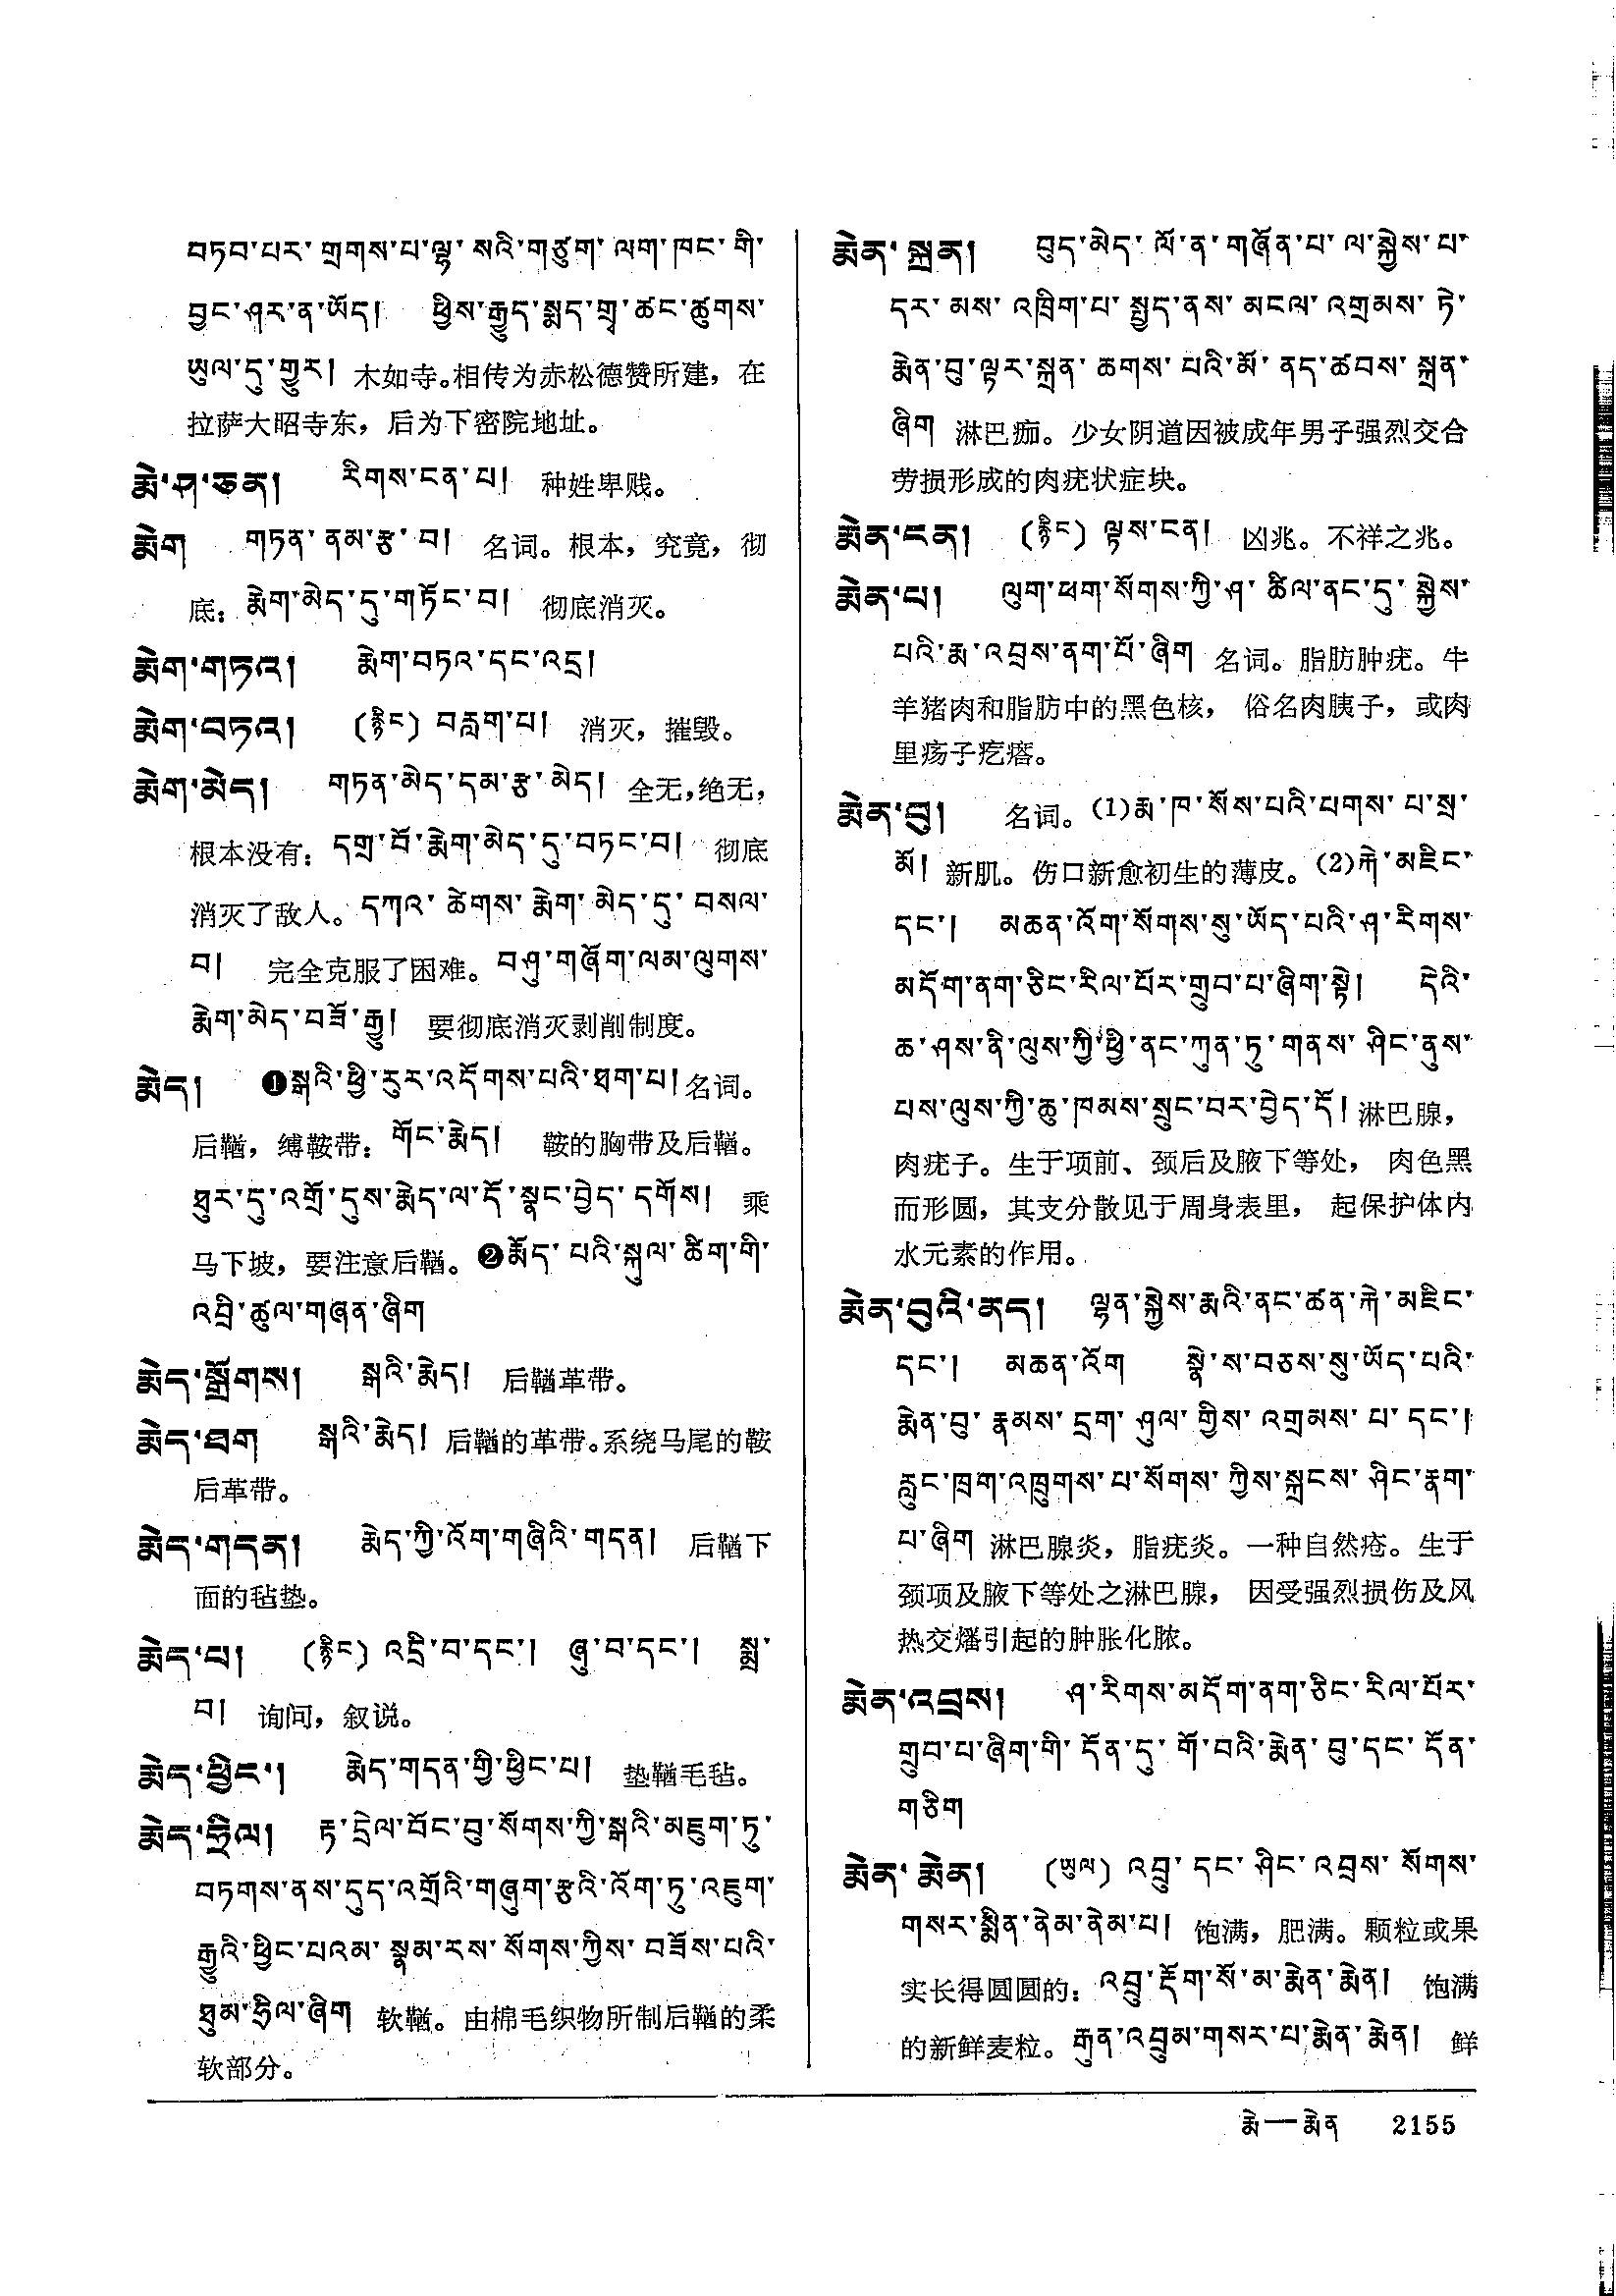 བཏབ་པར་གྲགས་པ་ལྷ་སའི་གཙུག་ལག་ཁང་གི་
བྱང་ཤར་ན་ཡོད།  ཕྱིས་རྒྱུད་སྨད་གྲྭ་ཚང་ཚུགས་
ཡུལ་དུ་གྱུར། 木如寺。相传为赤松德赞所建，在
拉萨大昭寺东，后为下密院地址。
རྨེ་ཤ་ཅན།  རིགས་ངན་པ། 种姓卑贱。
རྨེག  གཏན་ནམ་རྩ་བ། 名词。根本，究竟，彻
底：རྨེག་མེད་དུ་གཏོང་བ། 彻底消灭。
རྨེག་གཏའ།  རྨེག་བཏའ་དང་འདྲ།
རྨེག་བཏའ།  (རྙིང) བརླག་པ། 消灭，摧毁。
རྨེག་མེད།  གཏན་མེད་དམ་རྩ་མེད། 全无，绝无，
根本没有：དགྲ་བོ་རྨེག་མེད་དུ་བཏང་བ། 彻底
消灭了敌人。དཀའ་ཚེགས་རྨེག་མེད་དུ་བསལ་
བ། 完全克服了困难。བཤུ་གཞོག་ལམ་ལུགས་
རྨེག་མེད་བཟོ་རྒྱུ། 要彻底消灭剥削制度。
རྨེད།  ❶སྒའི་ཕྱི་རུར་འདོགས་པའི་ཐག་པ། 名词。
后鞧，缚鞍带：གོང་རྨེད། 鞍的胸带及后鞧。
ཐུར་དུ་འགྲོ་དུས་རྨེད་ལ་དོ་སྣང་བྱེད་དགོས། 乘
马下坡，要注意后鞧。❷རྨོད་པའི་སྐུལ་ཚིག་གི་
འབྲི་ཚུལ་གཞན་ཞིག
རྨེད་སྒྲོགས།  སྒའི་རྨེད། 后鞧革带。
རྨེད་ཐག  སྒའི་རྨེད། 后鞧的革带。系绕马尾的鞍
后革带。
རྨེད་གདན།  རྨེད་ཀྱི་འོག་གཞིའི་གདན། 后鞧下
面的毡垫。
རྨེད་པ།  (རྙིང) འདྲི་བ་དང་།  ཞུ་བ་དང་།  སྨྲ་
བ། 询问，叙说。
རྨེད་ཕྱིང་།  རྨེད་གདན་གྱི་ཕྱིང་པ། 垫鞧毛毡。
རྨེད་ཧྲིལ།  རྟ་དྲེལ་བོང་བུ་སོགས་ཀྱི་སྒའི་མཇུག་ཏུ་
བཏགས་ནས་དུད་འགྲོའི་གཞུག་རྩའི་འོག་ཏུ་འཇུག་
རྒྱུའི་ཕྱིང་པའམ་སྣམ་རས་སོགས་ཀྱིས་བཟོས་པའི་
ཐུམ་ཧྲིལ་ཞིག 软鞧。由棉毛织物所制后鞧的柔
软部分。
རྨེན་སྐྲན།  བུད་མེད་ལོ་ན་གཞོན་པ་ལ་སྐྱེས་པ་
དར་མས་འཁྲིག་པ་སྤྱད་ནས་མངལ་འགྲམས་ཏེ་
རྨེན་བུ་ལྟར་སྐྲན་ཆགས་པའི་མོ་ནད་ཚབས་སྐྲན་
ཞིག 淋巴痂。少女阴道因被成年男子强烈交合
劳损形成的肉疣状症块。
རྨེན་ངན།  (རྙིང) ལྟས་ངན། 凶兆。不祥之兆。
རྨེན་པ།  ལུག་ཕག་སོགས་ཀྱི་ཤ་ཚིལ་ནང་དུ་སྐྱེས་
པའི་རྨ་འབྲས་ནག་པོ་ཞིག 名词。脂肪肿疣。牛
羊猪肉和脂肪中的黑色核，俗名肉胰子，或肉
里疡子疙瘩。
རྨེན་བུ།  名词。(1)རྨ་ཁ་སོས་པའི་པགས་པ་སྲ་
མོ། 新肌。伤口新愈初生的薄皮。(2)ཀེ་མཇིང་
དང་།  མཆན་འོག་སོགས་སུ་ཡོད་པའི་ཤ་རིགས་
མདོག་ནག་ཅིང་རིལ་པོར་གྲུབ་པ་ཞིག་སྟེ།  དེའི་
ཆ་ཤས་ནི་ལུས་ཀྱི་ཕྱི་ནང་ཀུན་ཏུ་གནས་ཤིང་ནུས་
པས་ལུས་ཀྱི་ཆུ་ཁམས་སྲུང་བར་བྱེད་དོ། 淋巴腺，
肉疣子。生于项前、颈后及腋下等处，肉色黑
而形圆，其支分散见于周身表里，起保护体内
水元素的作用。
རྨེན་བུའི་ནད།  ལྷན་སྐྱེས་རྨའི་ནང་ཚན་ཀེ་མཇིང་
དང་།  མཆན་འོག  སྣེ་ས་བཅས་སུ་ཡོད་པའི་
རྨེན་བུ་རྣམས་དྲག་ཤུལ་གྱིས་འགྲམས་པ་དང་།
རླུང་ཁྲག་འཁྲུགས་པ་སོགས་ཀྱིས་སྐྲངས་ཤིང་རྣག་
པ་ཞིག 淋巴腺炎，脂疣炎。一种自然疮。生于
颈项及腋下等处之淋巴腺，因受强烈损伤及风
热交燔引起的肿胀化脓。
རྨེན་འབྲས།  ཤ་རིགས་མདོག་ནག་ཅིང་རིལ་པོར་
གྲུབ་པ་ཞིག་གི་དོན་དུ་གོ་བའི་རྨེན་བུ་དང་དོན་
གཅིག
རྨེན་རྨེན།  (ཡུལ) འབྲུ་དང་ཤིང་འབྲས་སོགས་
གསར་སྨིན་ནེམ་ནེམ་པ། 饱满，肥满。颗粒或果
实长得圆圆的：འབྲུ་རྡོག་སོ་མ་རྨེན་རྨེན། 饱满
的新鲜麦粒。རྒུན་འབྲུམ་གསར་པ་རྨེན་རྨེན། 鲜
རྨེ—རྨེན  2155